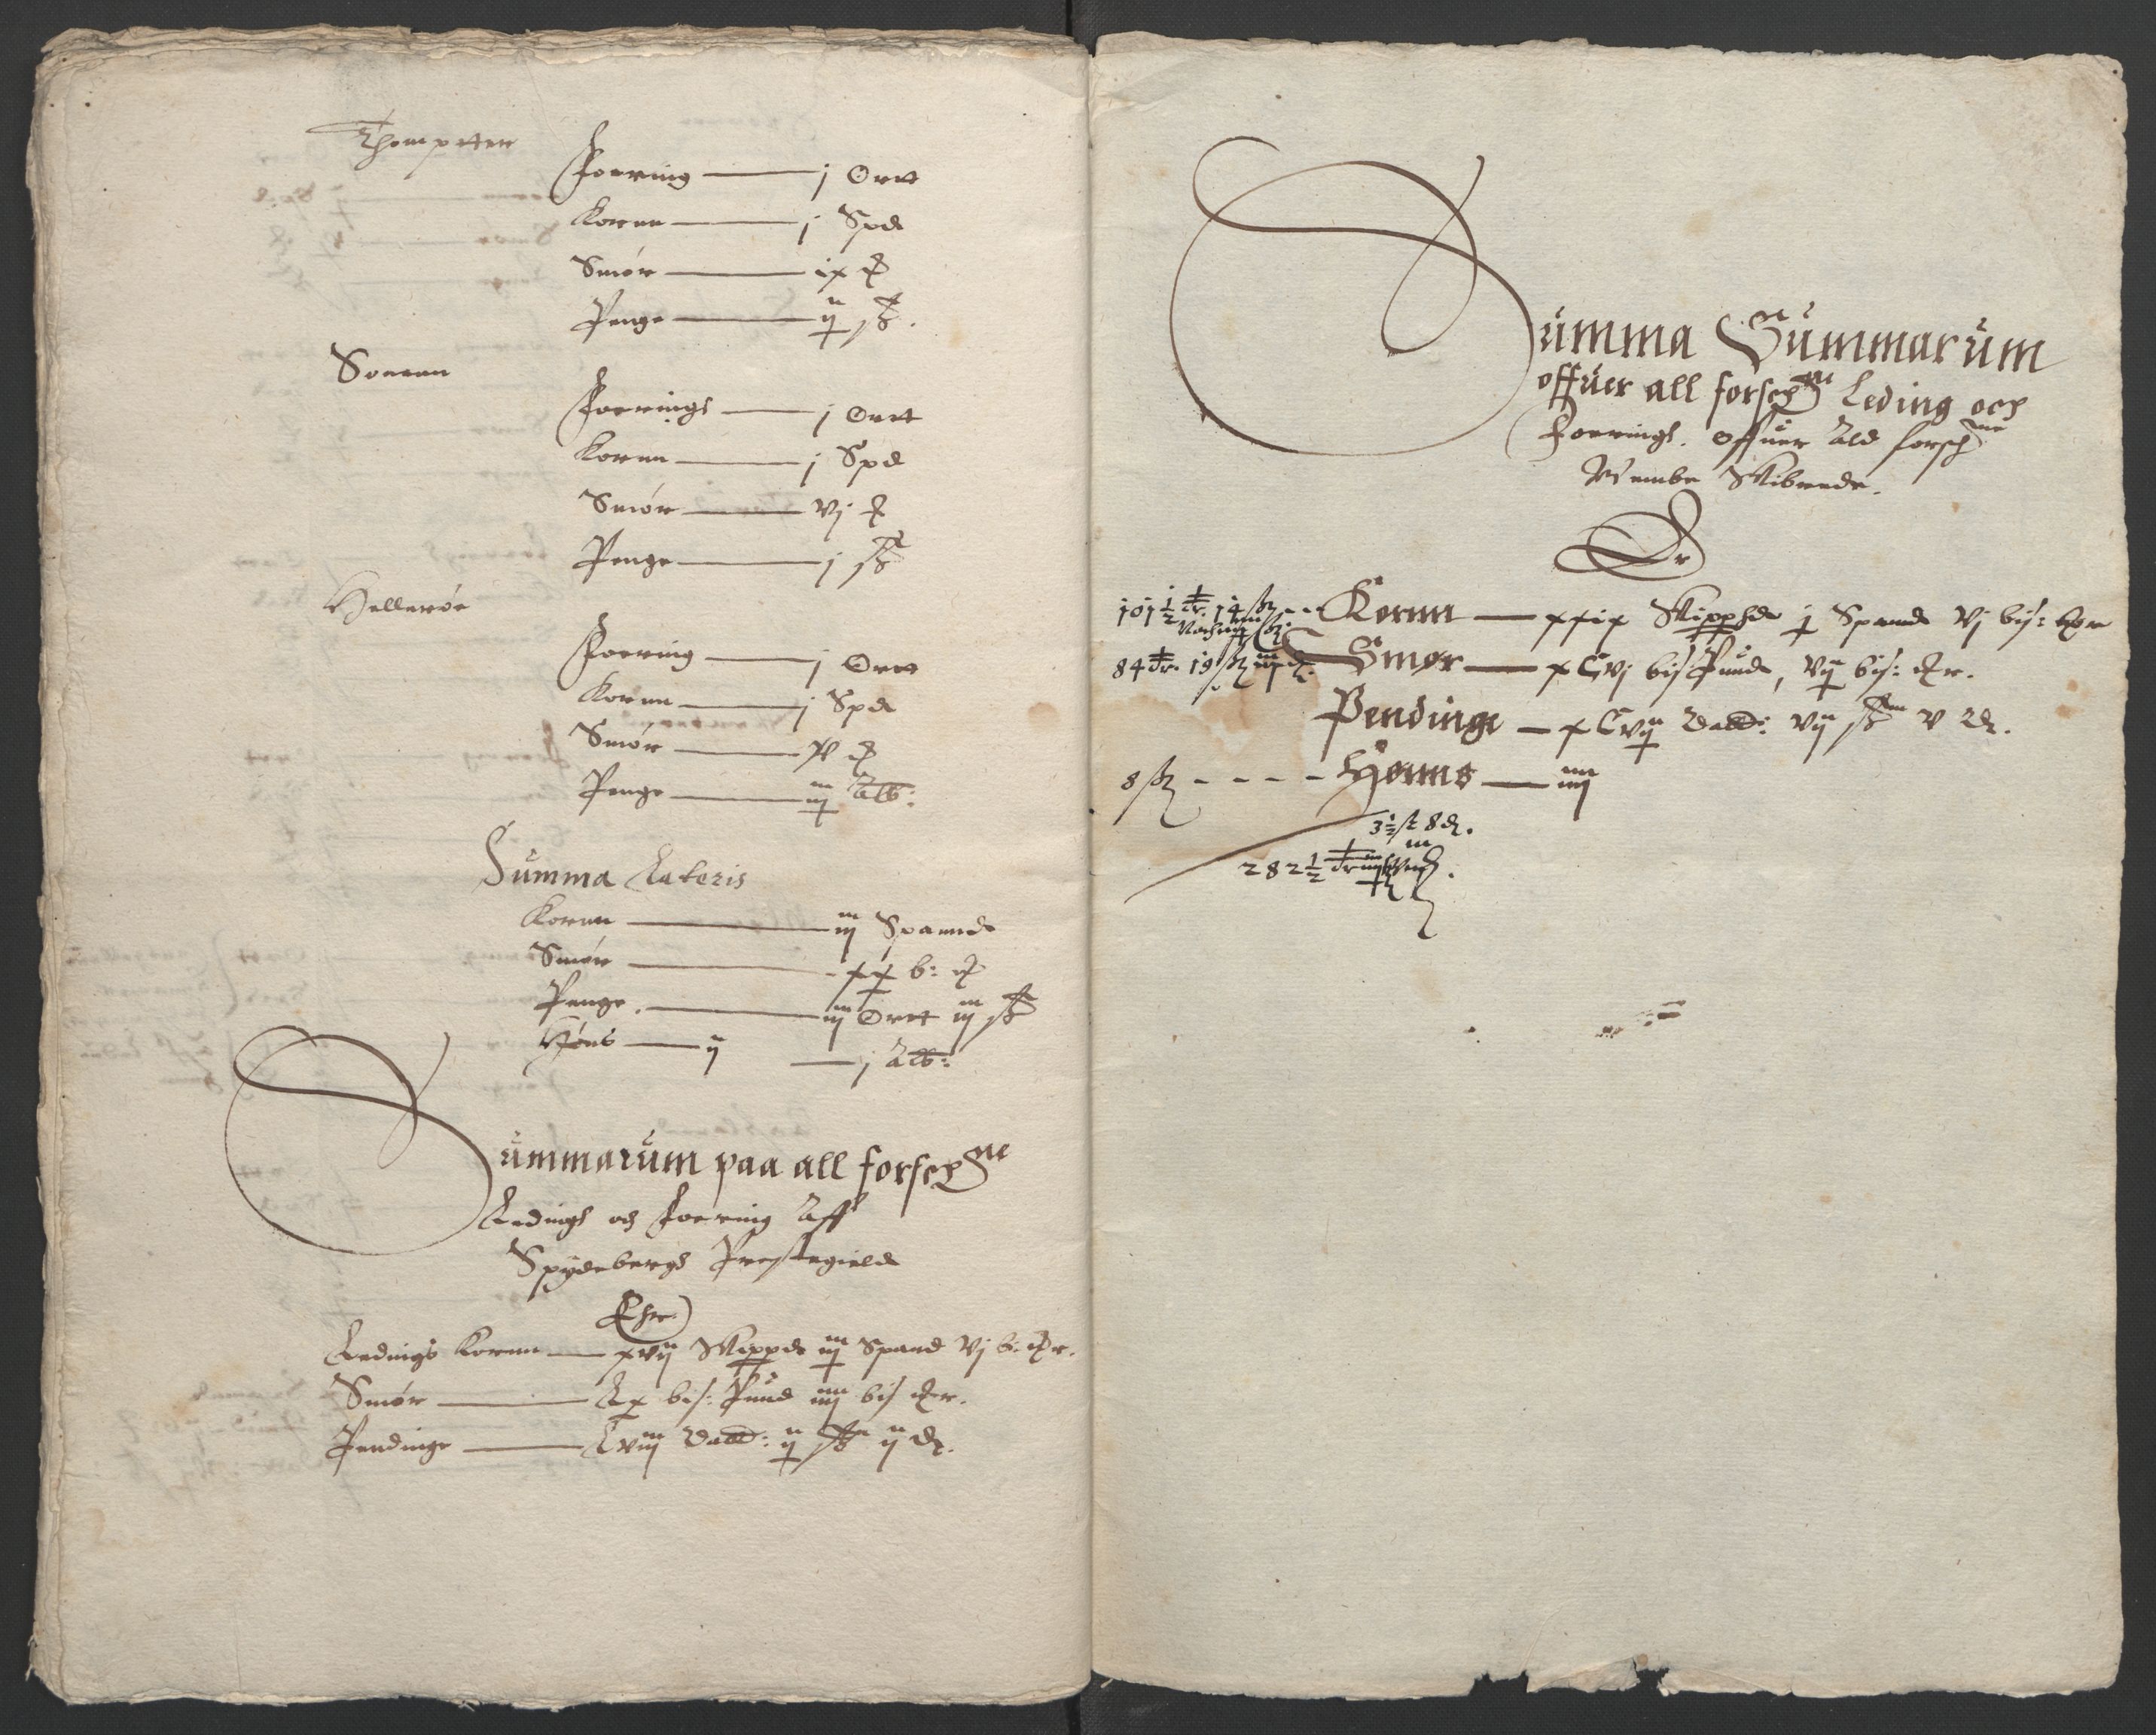 Thompetter
Foering — j Ort
Korun — j Spd
Smør — ix ℔
Penge — ij ß.
Soeren
Foerings — j Ort
Korun — j Spd
Smør — vj ℔
Penge — j ß
Hellerøe
Foering — j Ort
Korun — j Spd
Smør — ℔
Penge — iij Alb:
Summa Lateris
Korun — iij Spannd
Smør — xx b: ℔
Penge — iij Ort iij ß
Høns — ij — j Alb:
Summarum paa all forschne
Ledings och Foering Aff
Spydebergs Prestegield
Ehr
Ledings Korun — xvij Skippd iij Spand vj b: ℔r.
Smør — Lx bis: Pund iiij bis ℔r.
Pendinge — Lviij Dald: ij ß ij ₰.
Summa Summarum
offuer all forschne Leding och
Foerings. Offuer Ald forschne
Wembe Skibrede.
Er
101½ dr. 14 ß -- Kornn — xxix Skippd j Spannd vj bis: ℔r
84 dr. 19 ß Smør — x C vj bis Pund, vij bis: ℔r.
Pendinge — x C vij Dald: vij ß v ₰.
8 ß - - - - Høuns — iiij
3½ ß 8 ₰.
282½ dr